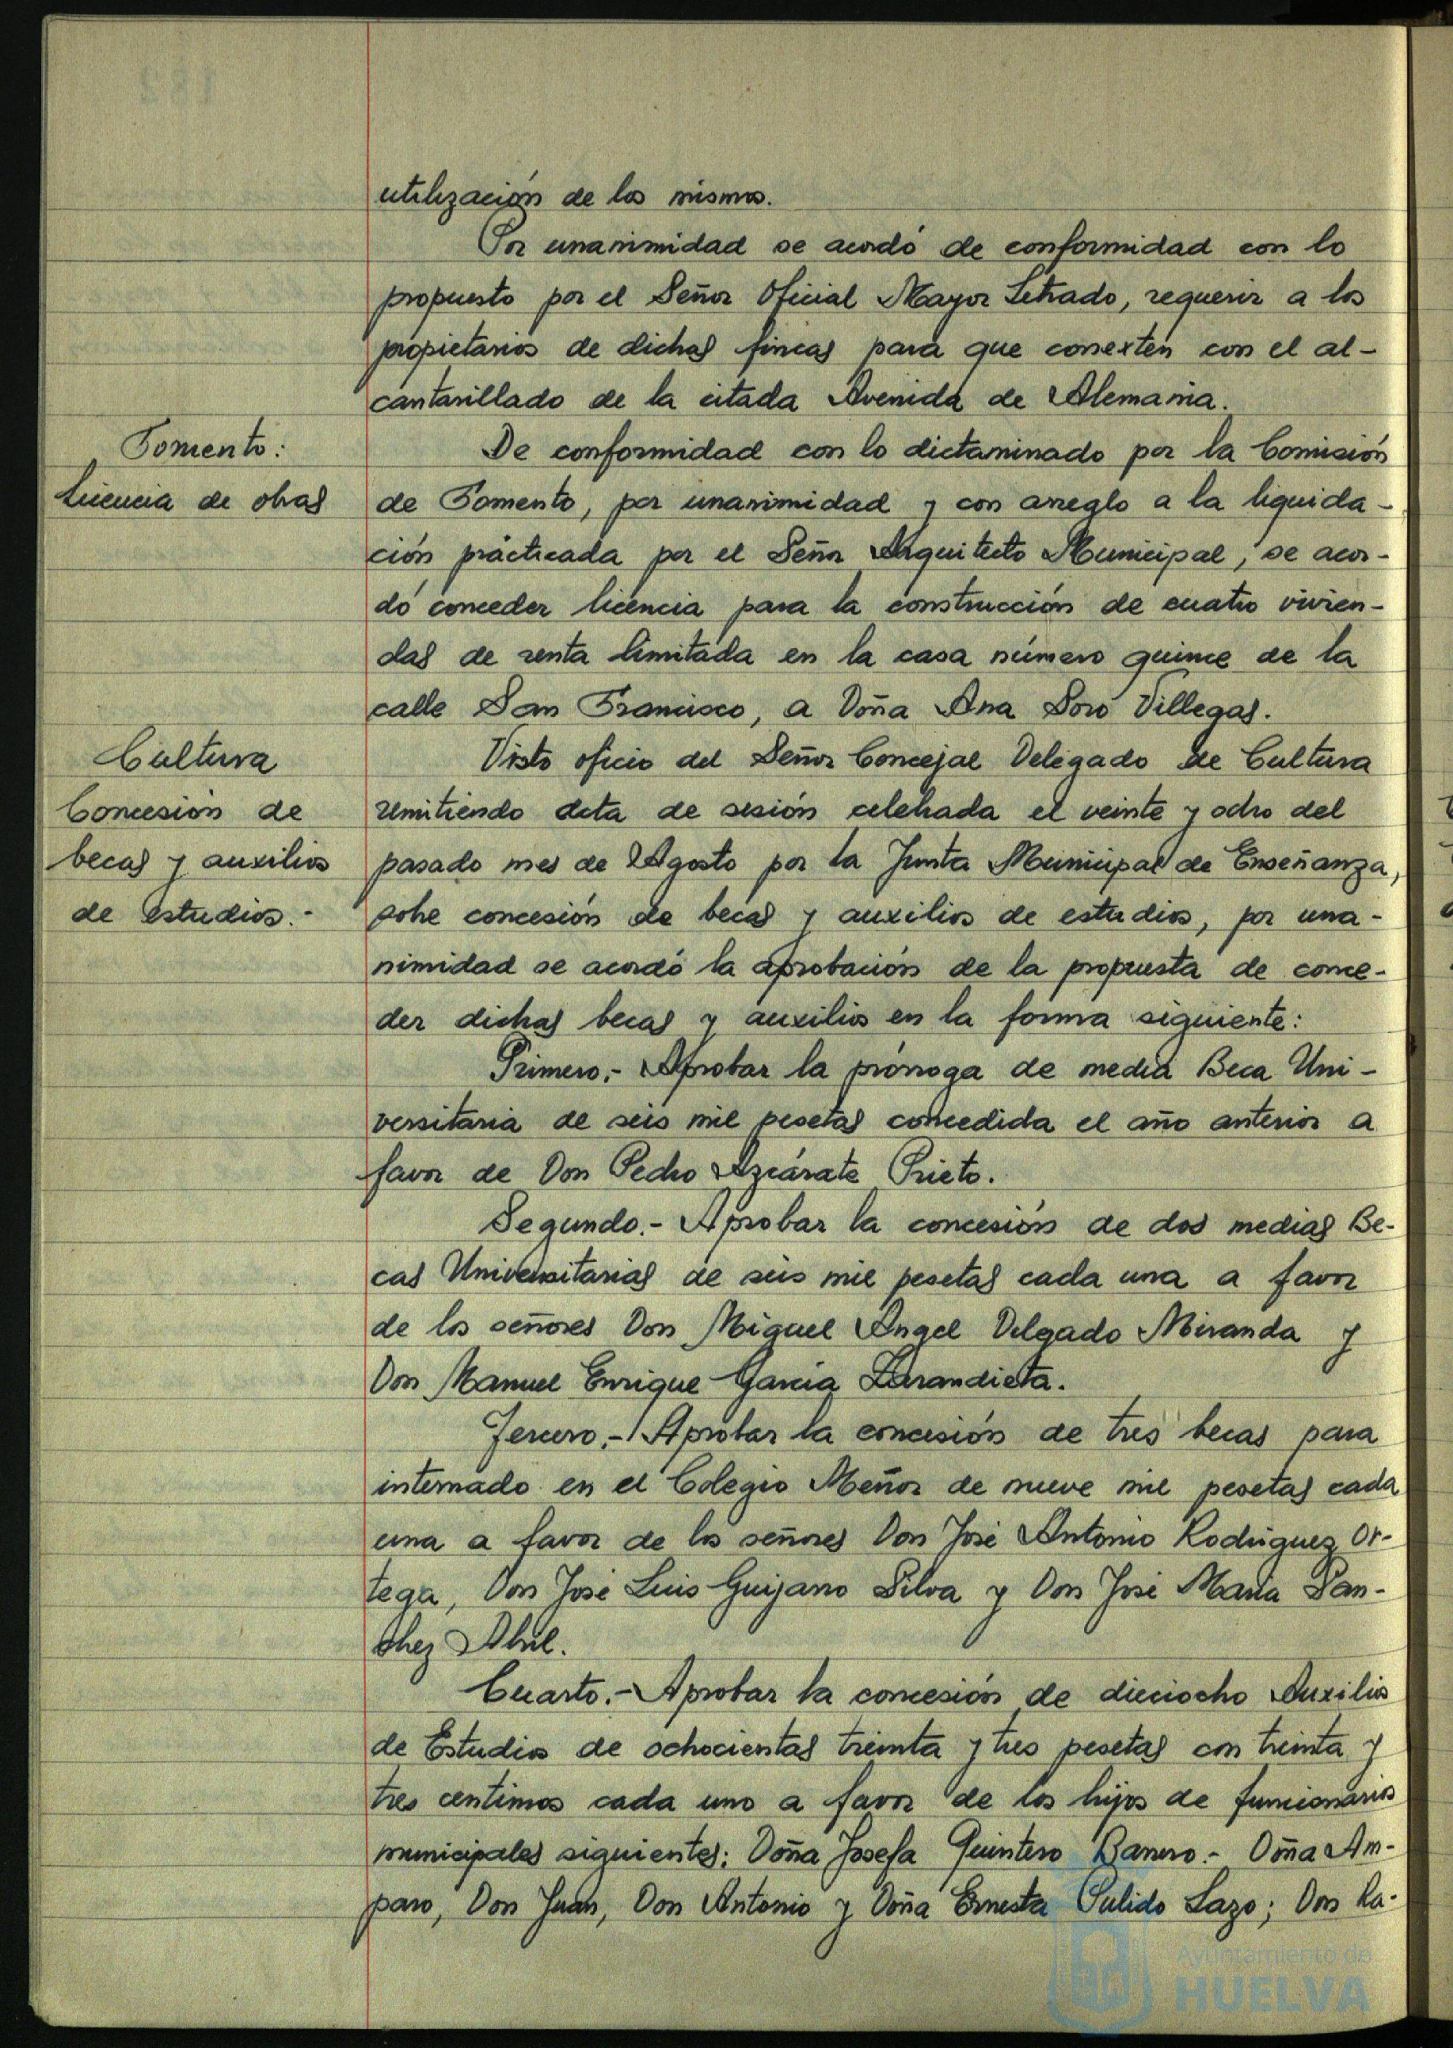 utilización de los mismos.
Por unanimidad se acordó de conformidad con lo
propuesto por el Señor Oficial Mayor Letrado, requerir a los
propietarios de dichas fincas para que conexten con el al-
cantarillado de la citada Avenida de Alemania.
Fomento:
Licencia de obras
De conformidad con lo dictaminado por la Comisión
de Fomento, por unanimidad y con arreglo a la liquida-
ción practicada por el Señor Arquitecto Municipal, se acor-
dó conceder licencia para la construcción de cuatro vivien-
das de renta limitada en la casa número quince de la
calle San Francisco, a Doña Ana Soró Villegas.
Cultura
Concesión de
becas y auxilios
de estudios.-
Visto oficio del Señor Concejal Delegado de Cultura
remitiendo acta de sesión celebrada el veinte y ocho del
pasado mes de Agosto por la Junta Municipal de Enseñanza,
sobre concesión de becas y auxilios de estudios, por una-
nimidad se acordó la aprobación de la propuesta de conce-
der dichas becas y auxilios en la forma siguiente:
Primero.- Aprobar la prórroga de media Beca Uni-
versitaria de seis mil pesetas concedida el año anterior a
favor de Don Pedro Azcárate Prieto.
Segundo.- Aprobar la concesión de dos medias Be-
cas Universitarias de seis mil pesetas cada una a favor
de los señores Don Miguel Angel Delgado Miranda y
Don Manuel Enrique García Zarandieta.
Tercero.- Aprobar la concesión de tres becas para
internado en el Colegio Menor de nueve mil pesetas cada
una a favor de los señores Don José Antonio Rodríguez Or-
tega, Don José Luis Guijarro Silva y Don José María Sán-
chez Abril.
Cuarto.- Aprobar la concesión de dieciocho Auxilios
de Estudios de ochocientas treinta y tres pesetas con treinta y
tres centimos cada uno a favor de los hijos de funcionarios
municipales siguientes: Doña Josefa Quintero Barrero.- Doña Am-
paro, Don Juan, Don Antonio y Doña Ernesta Pulido Lazo; Don Ra-
Ayuntamiento de
HUELVA